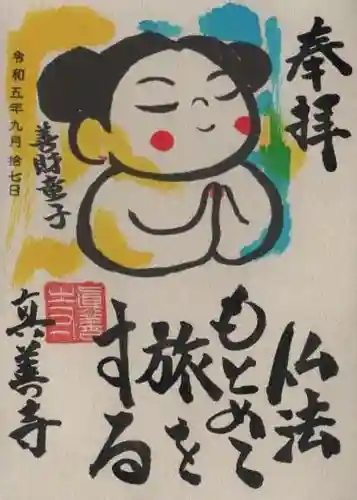 奉拝
仏法
もとめて
旅を
する
善財童子
令和五年九月拾七日
真善寺